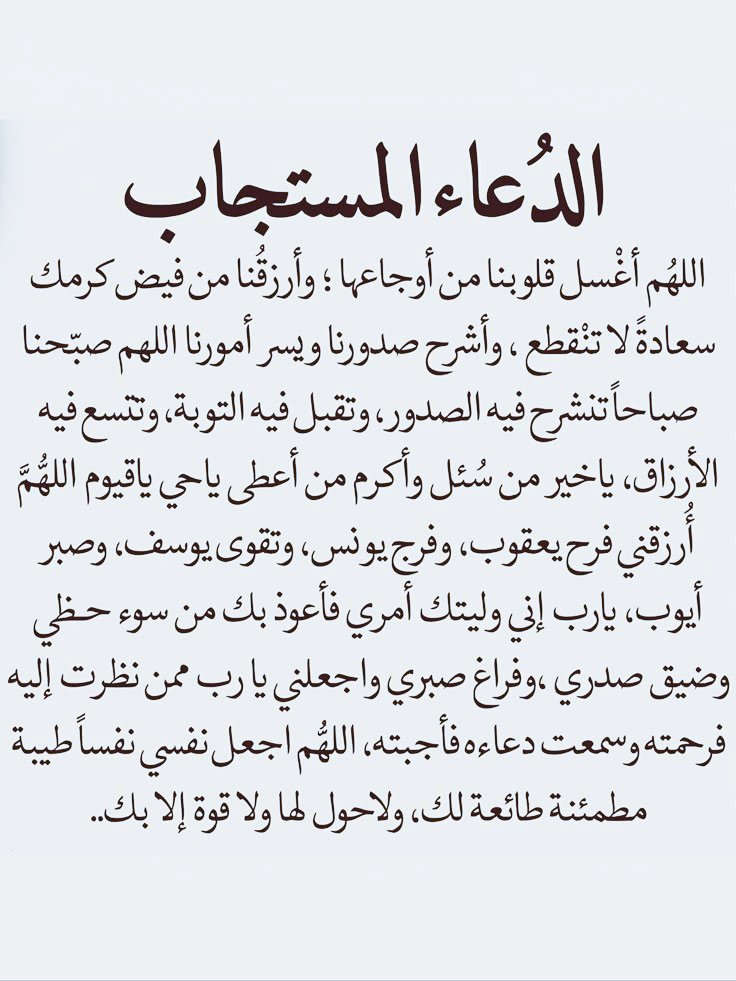 الدُعاء المستجاب
اللهُم أغْسل قلوبنا من أوجاعها ؛ وأرزقُنا من فيض كرمك
سعادةً لا تنْقطع ، وأشرح صدورنا ويسر أمورنا اللهم صبّحنا
صباحاً تنشرح فيه الصدور، وتقبل فيه التوبة، وتتسع فيه
الأرزاق، ياخير من سُئل وأكرم من أعطى ياحي ياقيوم اللهُّمَّ
أُرزقني فرح يعقوب، وفرج يونس، وتقوى يوسف، وصبر
أيوب، يارب إني وليتك أمري فأعوذ بك من سوء حظي
وضيق صدري ،وفراغ صبري واجعلني يا رب ممن نظرت إليه
فرحمته وسمعت دعاءه فأجبته، اللهُّم اجعل نفسي نفساً طيبة
مطمئنة طائعة لك، ولاحول لها ولا قوة إلا بك..